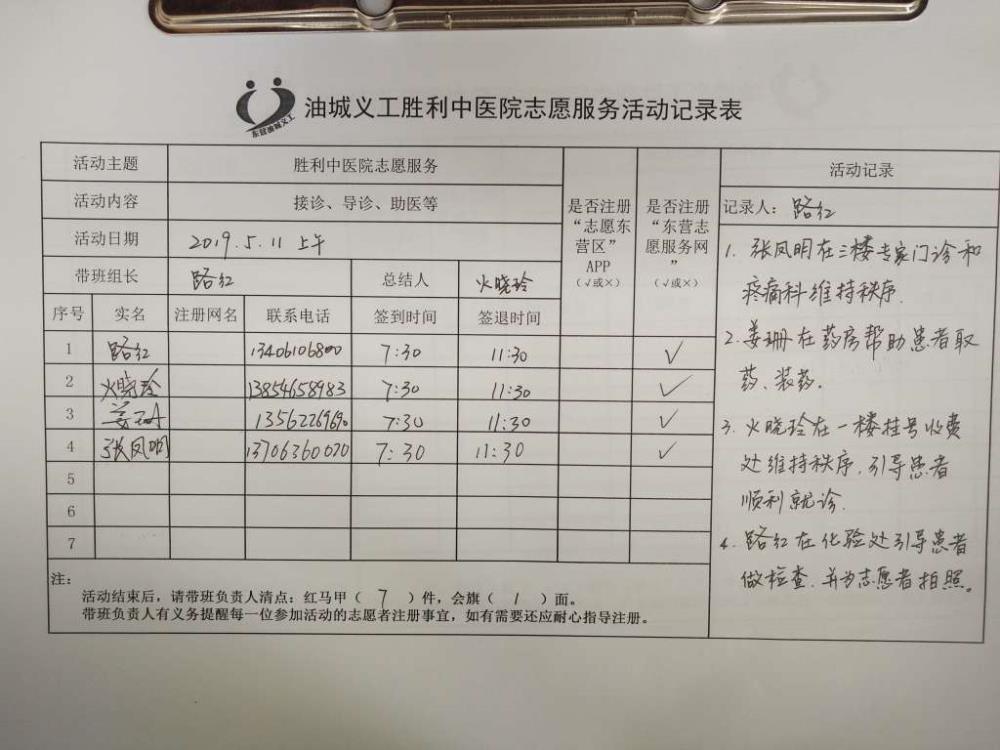 东营油城义工
油城义工胜利中医院志愿服务活动记录表
活动主题 胜利中医院志愿服务
活动内容 接诊、导诊、助医等
活动日期 2019.5.11 上午
带班组长 路红 总结人 火晓玲
是否注册“志愿东营区”APP（√或×）
是否注册“东营志愿服务网”（√或×）
序号 实名 注册网名 联系电话 签到时间 签退时间
1 路红 13406106800 7:30 11:30 √
2 火晓玲 13854658983 7:30 11:30 √
3 姜珊 13562269690 7:30 11:30 √
4 张凤明 13706360020 7:30 11:30 √
5
6
7
注：
活动结束后，请带班负责人清点：红马甲（ 7 ）件，会旗（ 1 ）面。
带班负责人有义务提醒每一位参加活动的志愿者注册事宜，如有需要还应耐心指导注册。
活动记录
记录人：路红
1. 张凤明在三楼专家门诊和
疼痛科维持秩序.
2. 姜珊在药房帮助患者取
药、装药.
3. 火晓玲在一楼挂号收费
处维持秩序，引导患者
顺利就诊.
4. 路红在化验处引导患者
做检查.并为志愿者拍照。